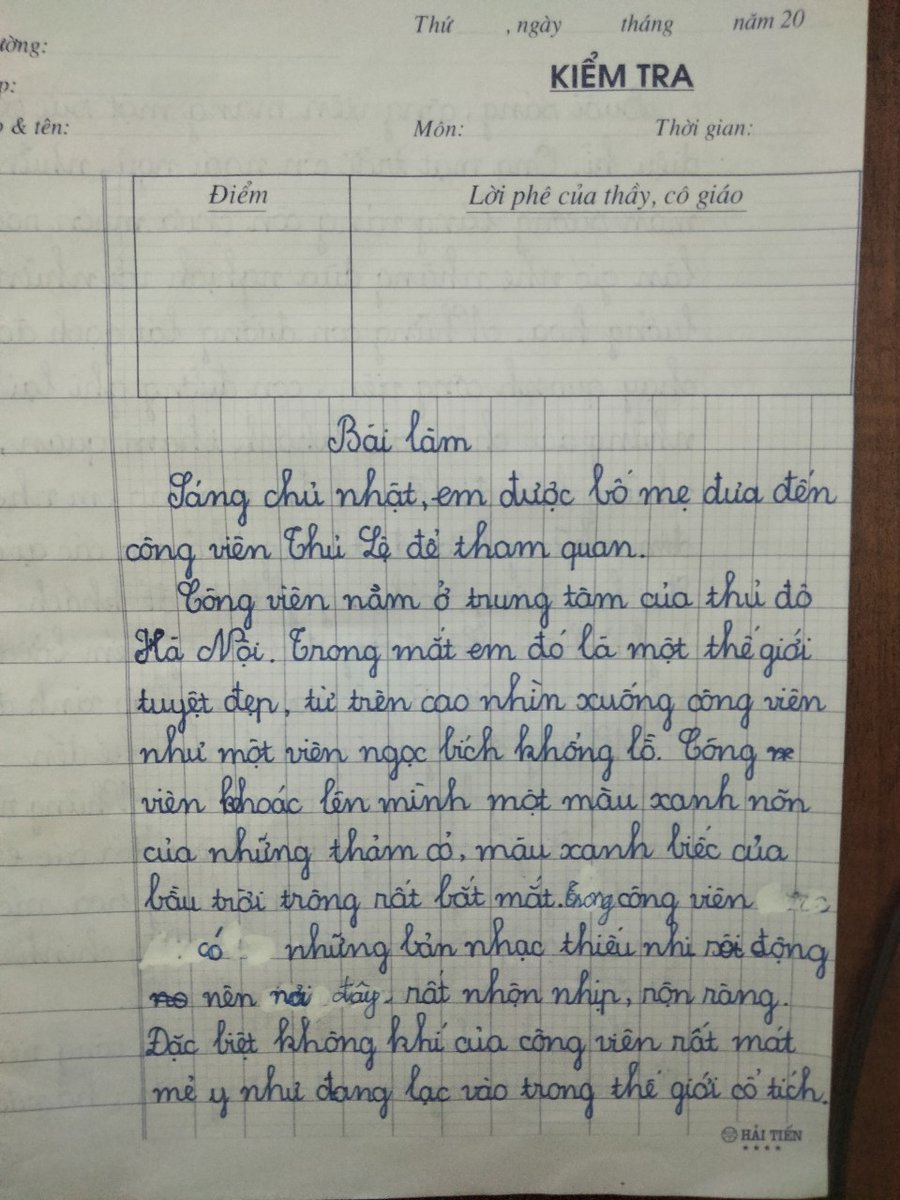 Thứ , ngày tháng năm 20
ường:
KIỂM TRA
p:
& tên:
Môn: Thời gian:
Điểm Lời phê của thầy, cô giáo
Bài làm
Sáng chủ nhật, em được bố mẹ đưa đến
công viên Thủ Lệ để tham quan.
Công viên nằm ở trung tâm của thủ đô
Hà Nội. Trong mắt em đó là một thế giới
tuyệt đẹp, từ trên cao nhìn xuống công viên
như một viên ngọc bích khổng lồ. Công
viên khoác lên mình một màu xanh nõn
của những thảm cỏ, màu xanh biếc của
bầu trời trông rất bắt mắt. Trong công viên
có những bản nhạc thiếu nhi sôi động
nên nơi đây rất nhộn nhịp, rộn ràng.
Đặc biệt không khí của công viên rất mát
mẻ y như đang lạc vào trong thế giới cổ tích.
HẢI TIẾN